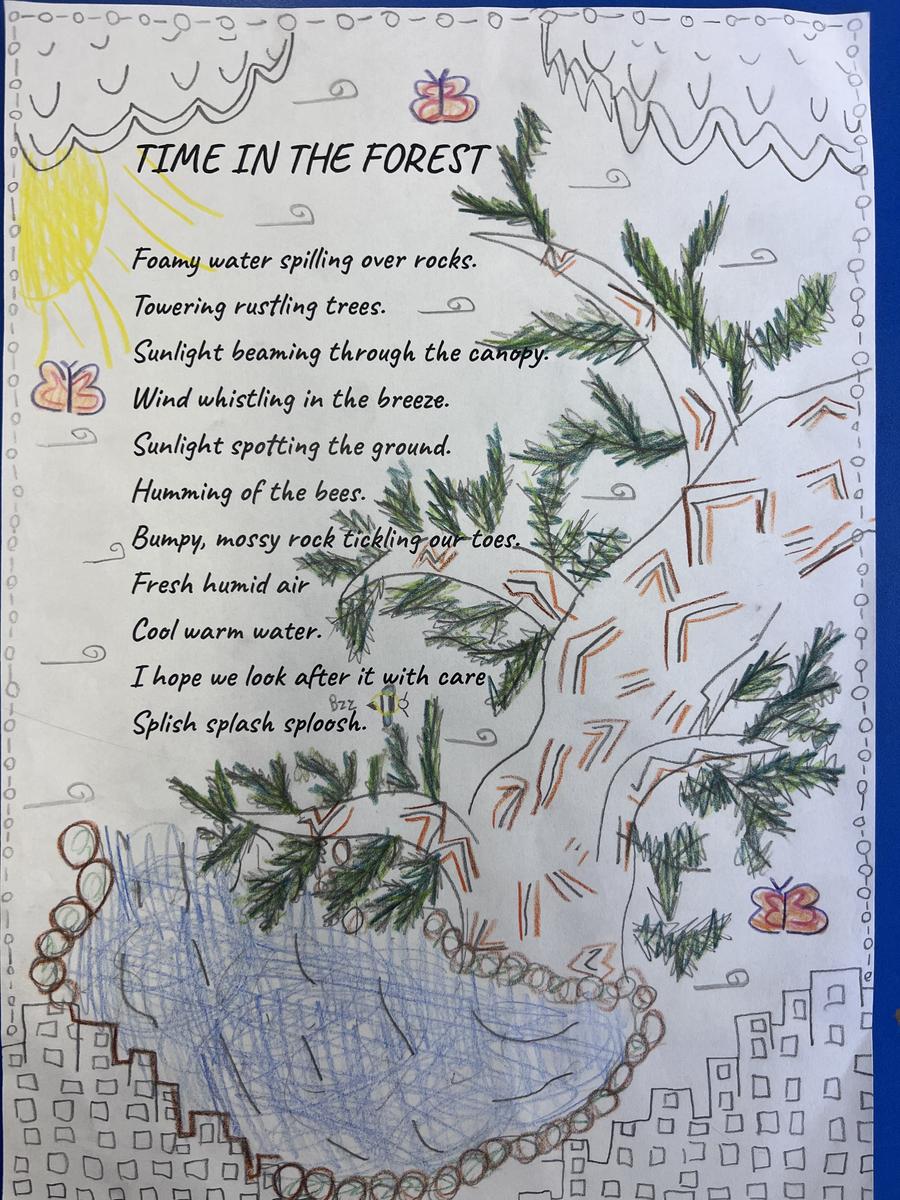 TIME IN THE FOREST
Foamy water spilling over rocks.
Towering rustling trees.
Sunlight beaming through the canopy.
Wind whistling in the breeze.
Sunlight spotting the ground.
Humming of the bees.
Bumpy, mossy rock tickling our toes.
Fresh humid air
Cool warm water.
I hope we look after it with care
Bzz
Splish splash sploosh.